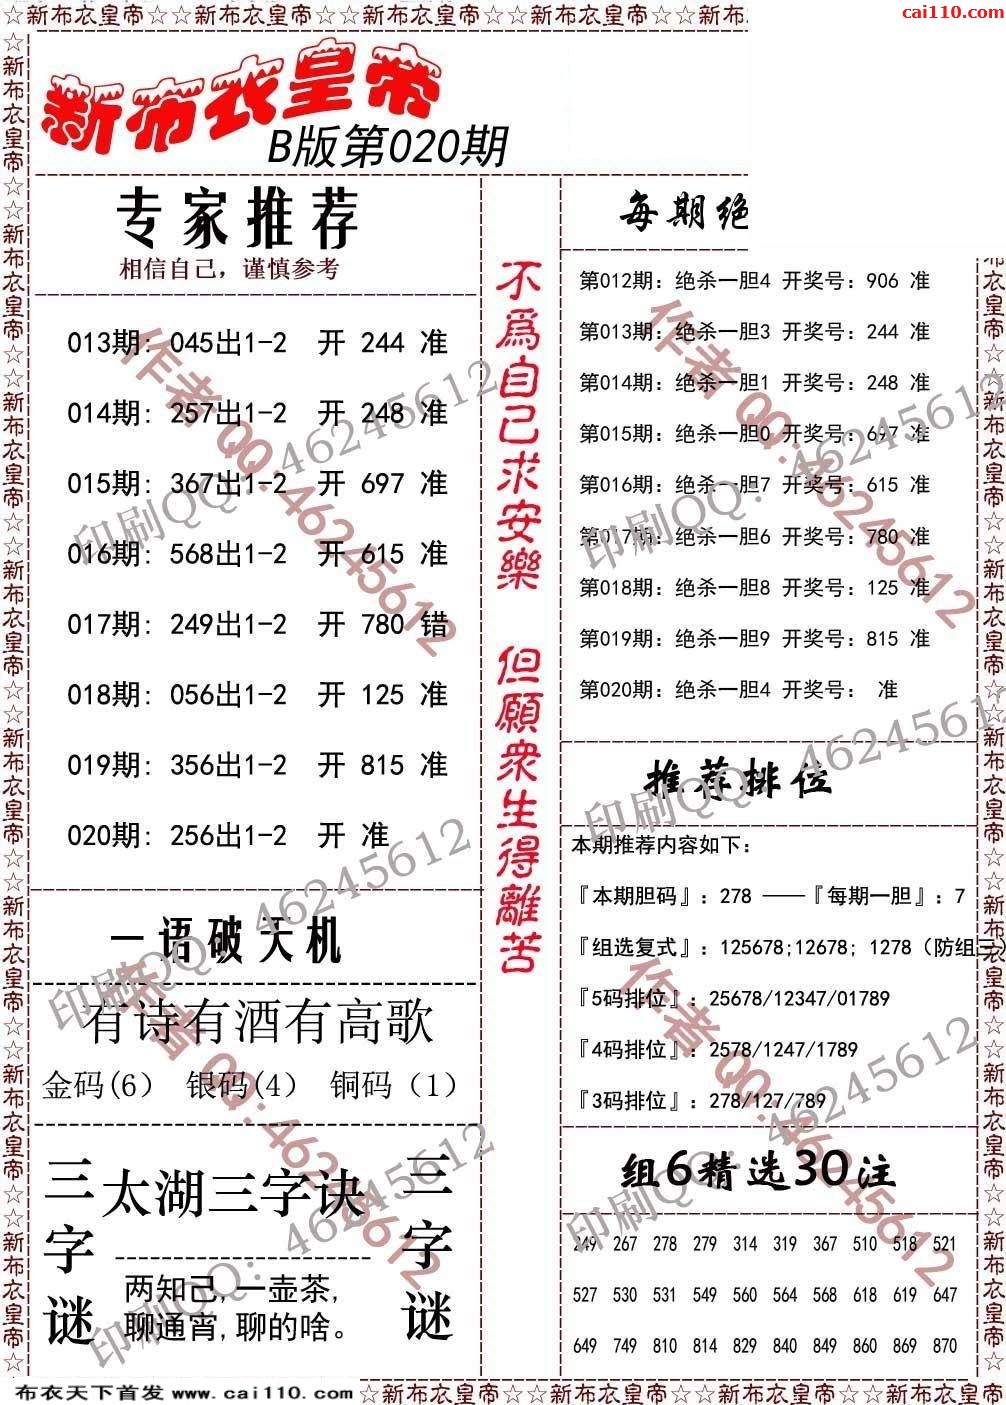 ☆新布衣皇帝☆☆新布衣皇帝☆☆新布衣皇帝☆☆新布衣皇帝☆☆新布
cai110.com
新布衣皇帝
B版第020期
专家推荐
相信自己，谨慎参考
013期: 045出1-2 开 244 准
014期: 257出1-2 开 248 准
015期: 367出1-2 开 697 准
016期: 568出1-2 开 615 准
017期: 249出1-2 开 780 错
018期: 056出1-2 开 125 准
019期: 356出1-2 开 815 准
020期: 256出1-2 开 准
一语破天机
有诗有酒有高歌
金码(6) 银码(4) 铜码（1）
三字谜
太湖三字诀
两知己,一壶茶,
聊通宵,聊的啥。
三字谜
不為自己求安樂 但願衆生得離苦
每期绝
第012期: 绝杀一胆4 开奖号: 906 准
第013期: 绝杀一胆3 开奖号: 244 准
第014期: 绝杀一胆1 开奖号: 248 准
第015期: 绝杀一胆0 开奖号: 697 准
第016期: 绝杀一胆7 开奖号: 615 准
第017期: 绝杀一胆6 开奖号: 780 准
第018期: 绝杀一胆8 开奖号: 125 准
第019期: 绝杀一胆9 开奖号: 815 准
第020期: 绝杀一胆4 开奖号: 准
推荐排位
本期推荐内容如下:
『本期胆码』: 278 ——『每期一胆』: 7
『组选复式』: 125678;12678; 1278（防组三）
『5码排位』: 25678/12347/01789
『4码排位』: 2578/1247/1789
『3码排位』: 278/127/789
组6精选30注
249 267 278 279 314 319 367 510 518 521
527 530 531 549 560 564 568 618 619 647
649 749 810 814 829 840 849 860 869 870
作者QQ:46245612
印刷QQ: 46245612
布衣天下首发 www.cai110.com
☆新布衣皇帝☆☆新布衣皇帝☆☆新布衣皇帝☆☆新布衣皇帝☆